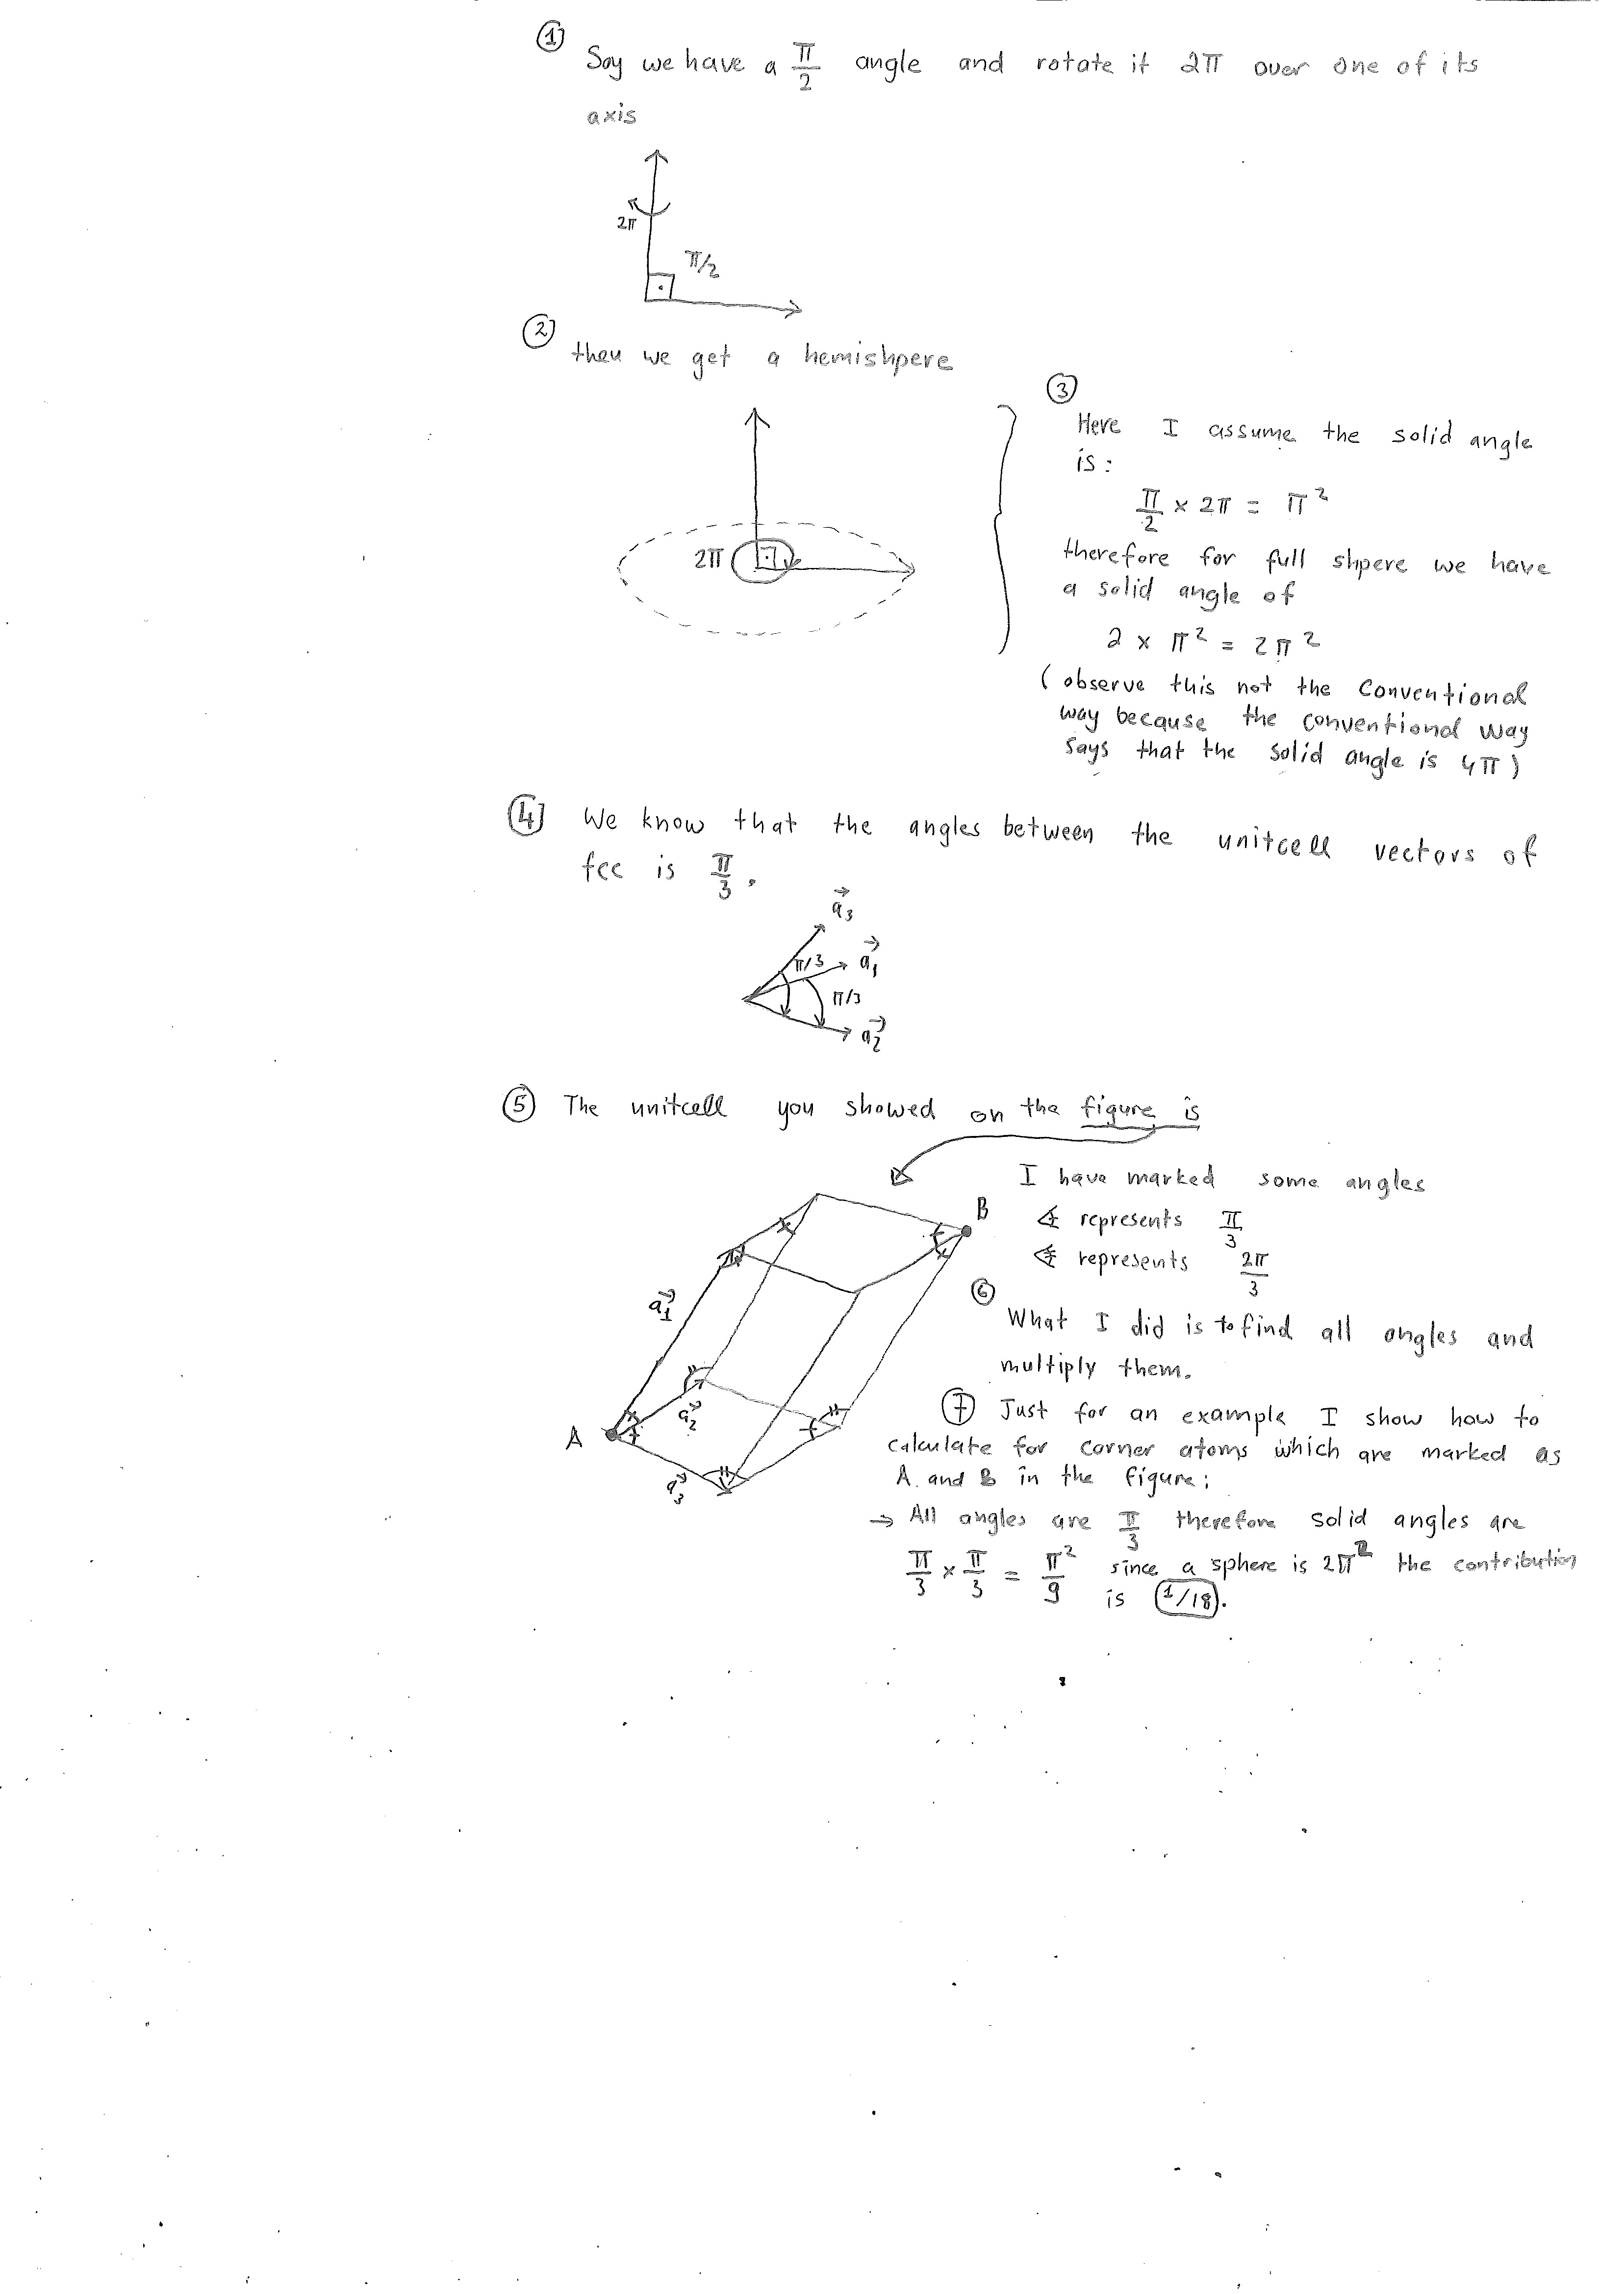 ①
Say we have a π/2 angle and rotate it 2π over one of its
axis
2π
π/2
②
then we get a hemishpere
2π
③
Here I assume the solid angle
is:
π/2 × 2π = π²
therefore for full shpere we have
a solid angle of
2 × π² = 2π²
(observe this not the conventional
way because the conventional way
says that the solid angle is 4π)
④ We know that the angles between the unitcell vectors of
fcc is π/3.
a⃗₃
π/3
a⃗₁
π/3
a⃗₂
⑤ The unitcell you showed on the figure is
I have marked some angles
B
∢ represents π/3
∢ represents 2π/3
a⃗₁
⑥
What I did is to find all angles and
multiply them.
⑦ Just for an example I show how to
calculate for corner atoms which are marked as
A and B in the figure:
A
a⃗₂
a⃗₃
→ All angles are π/3 therefore solid angles are
π/3 × π/3 = π²/9 since a sphere is 2π² the contribution
is 1/18.